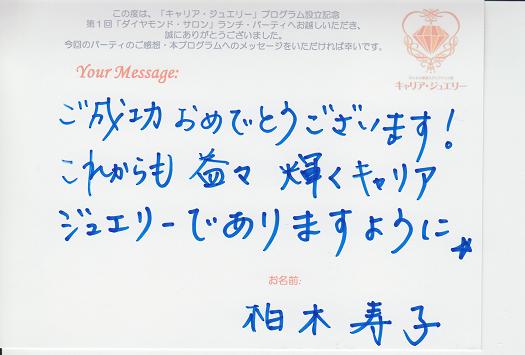 この度は、「キャリア・ジュエリー」プログラム設立記念
第1回「ダイヤモンド・サロン」ランチ・パーティへお越しいただき、
誠にありがとうございました。
今回のパーティのご感想・本プログラムへのメッセージをいただければ幸いです。
キャリア・ジュエリー
Your Message:
ご成功おめでとうございます!
これからも益々輝くキャリア
ジュエリーでありますように☆
お名前:
柏木寿子